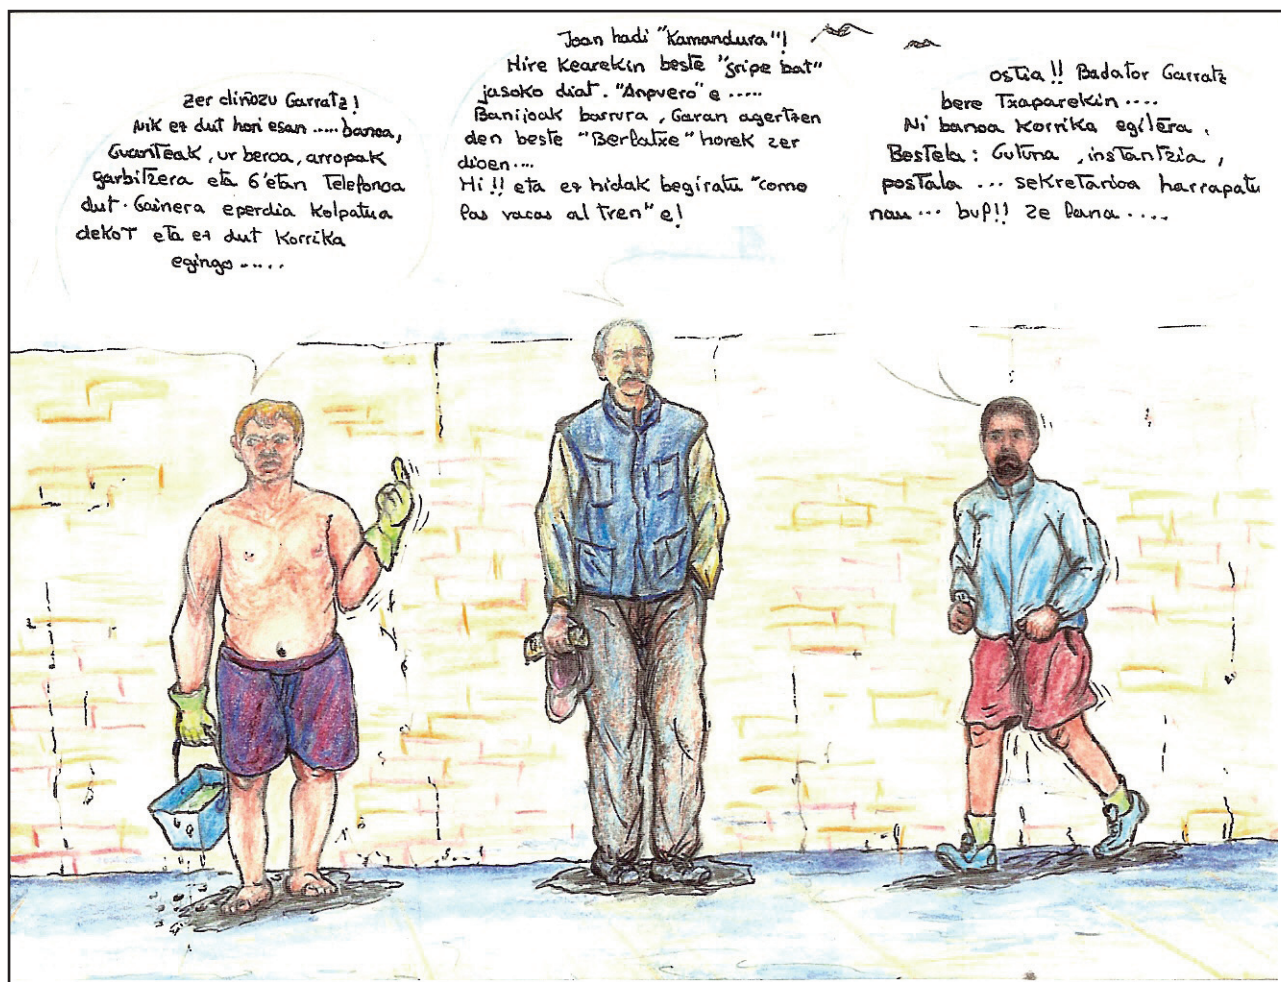 zer diñozu Garratz!
Nik ez dut hori esan ..... banoa,
Guanteak, ur beroa, arropak
garbitzera eta 6'etan Telefonoa
dut. Gainera eperdia kolpatua
dekoT eta ez dut korrika
egingo .....
Joan hadi "Kamandura"!
Hire Kearekin beste "gripe bat"
jasoko diat. "Anpuero" e .....
Banijoak barrura, Garan agertzen
den beste "Berlatxe" horek zer
dioen ...
Hi!! eta ez hidak begiratu "como
las vacas al tren" e!
ostia!! Badator Garratz
bere Txaparekin ....
Ni banoa korrika egitera.
Bestela: Gutuna, instantzia,
postala ... sekretarioa harrapatu
nau ... buf!! ze lana ....